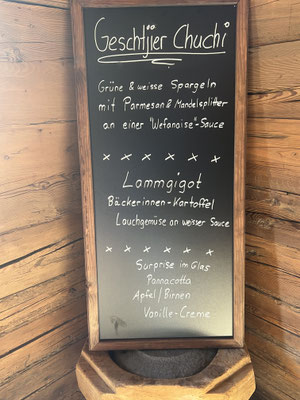 Geschtjier Chuchi
Grüne & weisse Spargeln
mit Parmesan & Mandelsplitter
an einer "Wefanaise"-Sauce
x x x x x x
Lammgigot
Bäckerinnen-Kartoffel
Lauchgemüse an weisser Sauce
x x x x x x
Surprise im Glas
Pannacotta
Apfel/Birnen
Vanille-Creme